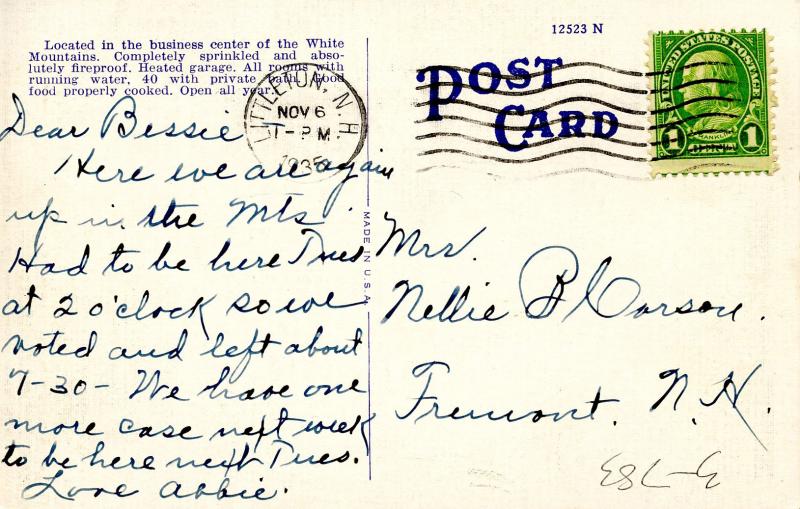 Located in the business center of the White
Mountains. Completely sprinkled and abso-
lutely fireproof. Heated garage. All rooms with
running water. 40 with private bath. Good
food properly cooked. Open all year.
12523 N
POST
CARD
LITTLETON, N.H.
NOV 6
1-PM
1935
UNITED STATES POSTAGE
FRANKLIN
1 1
MADE IN U.S.A.
Dear Bessie
Here we are again
up in the Mts.
Had to be here Tues
at 2 o'clock so we
voted and left about
7-30- We have one
more case next week
to be here next Tues.
Love Abbie.
Mrs.
Nellie B Carson.
Fremont. N.H.